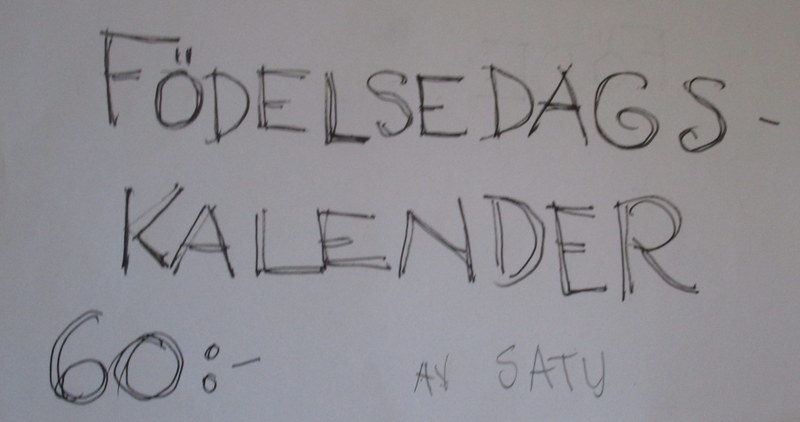 FÖDELSEDAGS-
KALENDER
60:- AV SATU